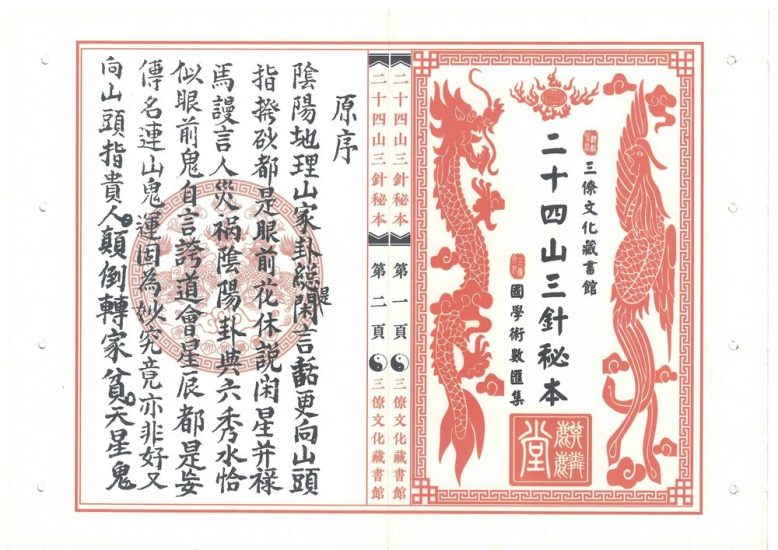 三僚文化藏書館
二十四山三針秘本
國學術數匯集
麒麟堂
二十四山三針秘本 第一頁 三僚文化藏書館
二十四山三針秘本 第二頁 三僚文化藏書館
原序
陰陽地理山家卦總是閑言話更向山頭
指撥砂都是眼前花休說闲星并祿
馬謾言人災禍陰陽卦典六秀水恰
似眼前鬼自言誇道會星辰都是妄
傳名連山鬼運固為妙究竟亦非好又
向山頭指貴人顛倒轉家貧天星鬼